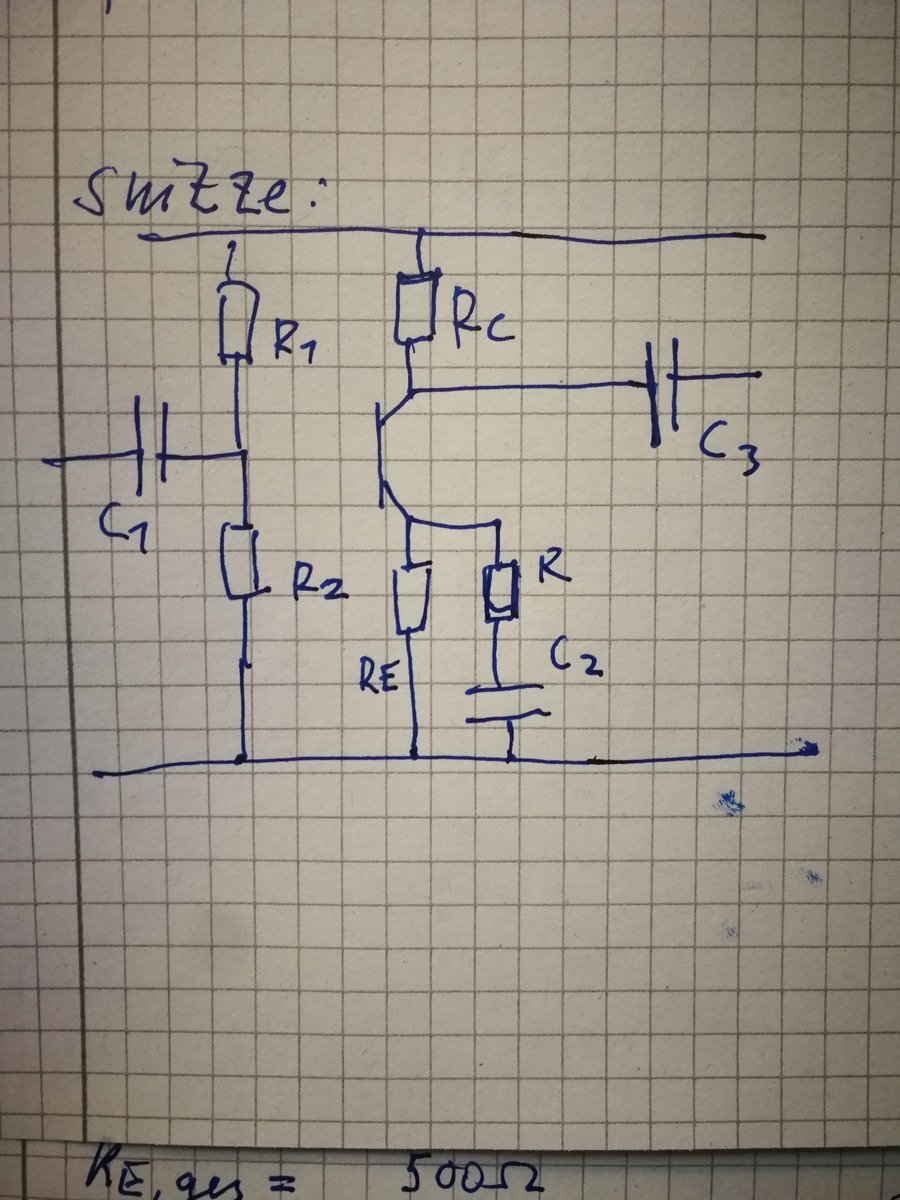 Skizze:
R1
RC
C3
C1
R2
R
RE
C2
RE, ges = 500Ω